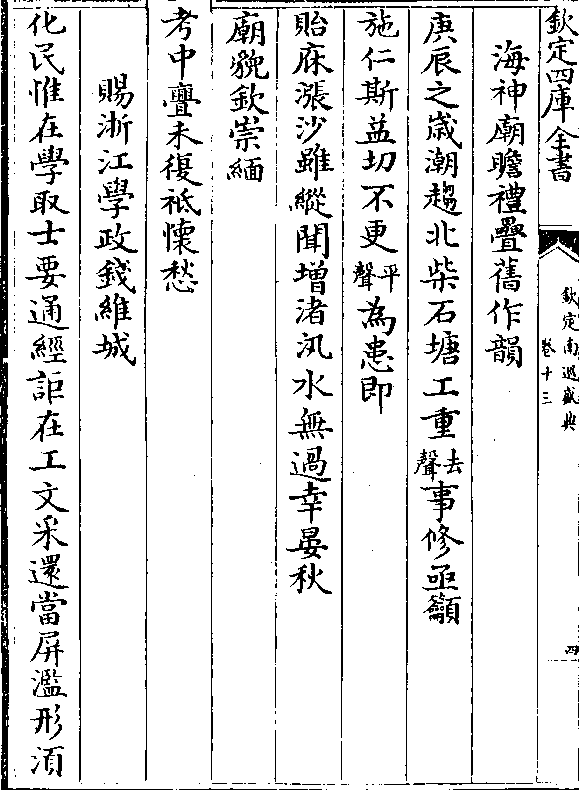 欽定四庫全書
欽定南巡盛典
卷十三
四
海神廟瞻禮疊舊作韻
庚辰之歲潮趨北柴石塘工重去聲事修亟籲
施仁斯益切不更平聲為患即
貽庥漲沙雖縱聞增渚汛水無過幸晏秋
廟貌欽崇緬
考中亹未復祗懷愁
賜浙江學政錢維城
化民惟在學取士要通經詎在工文采還當屏濫形湏